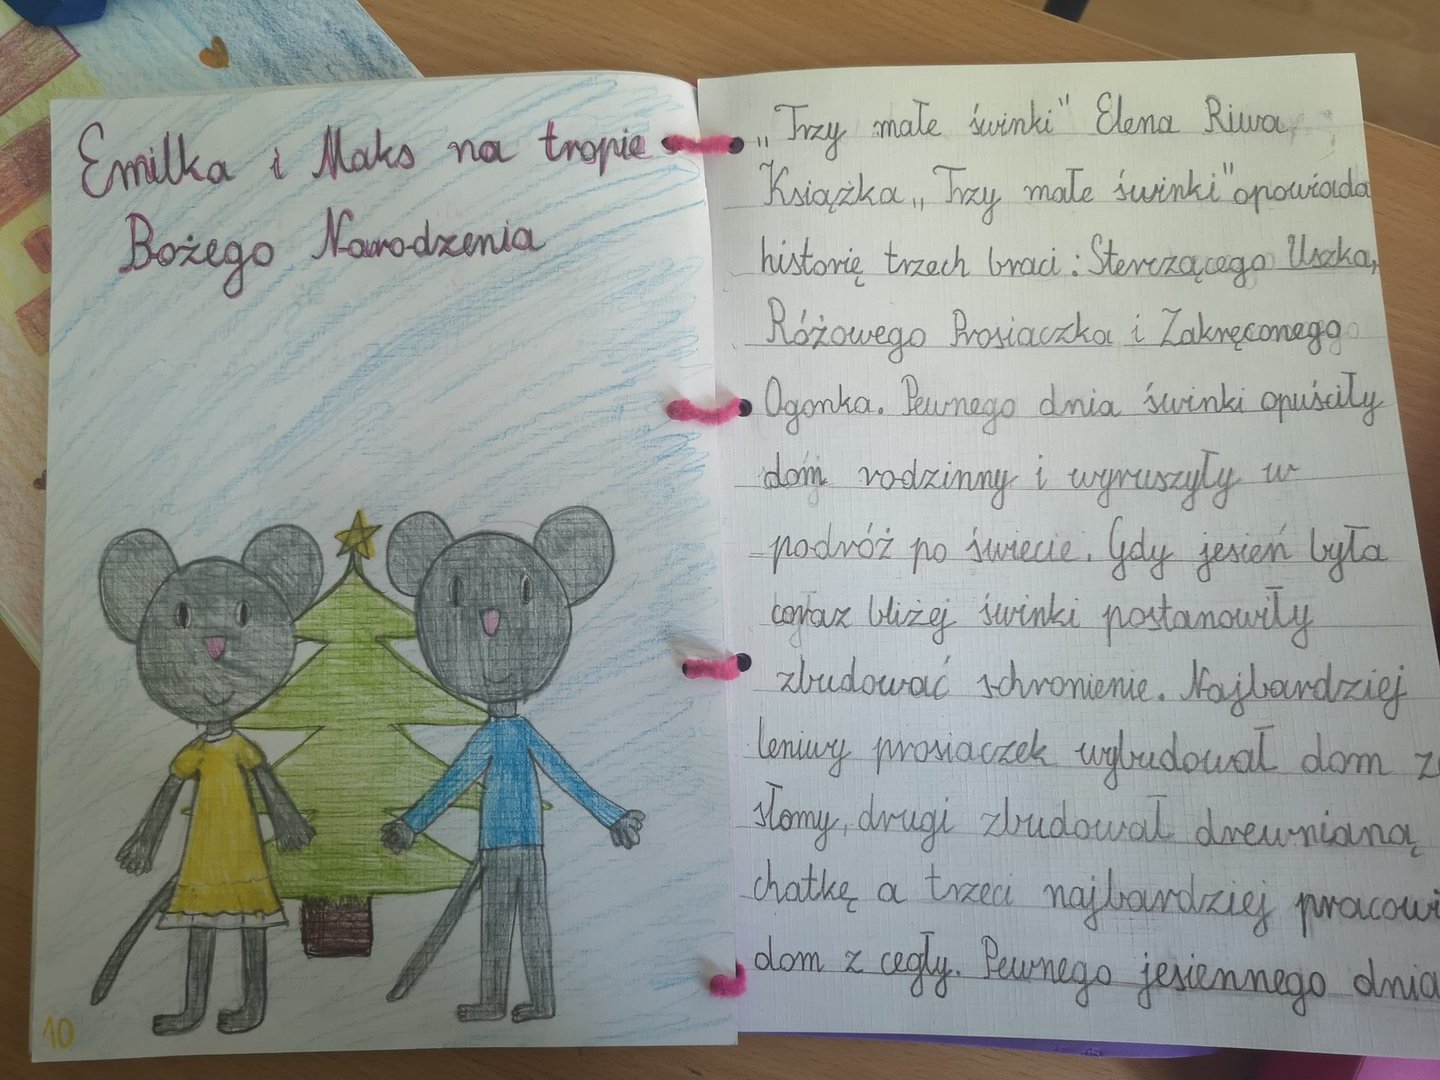 Emilka i Maks na tropie
Bożego Narodzenia
10
„Trzy małe świnki" Elena Riwa
Książka „Trzy małe świnki" opowiada
historię trzech braci: Sterczącego Uszka,
Różowego Prosiaczka i Zakręconego
Ogonka. Pewnego dnia świnki opuściły
dom rodzinny i wyruszyły w
podróż po świecie. Gdy jesień była
coraz bliżej świnki postanowiły
zbudować schronienie. Najbardziej
leniwy prosiaczek wybudował dom z
słomy, drugi zbudował drewnianą
chatkę a trzeci najbardziej pracowi
dom z cegły. Pewnego jesiennego dnia